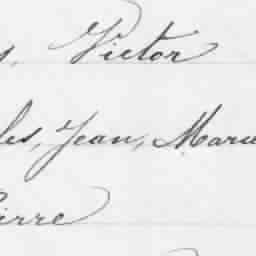 s, Victor
les, Jean, Marie
ierre